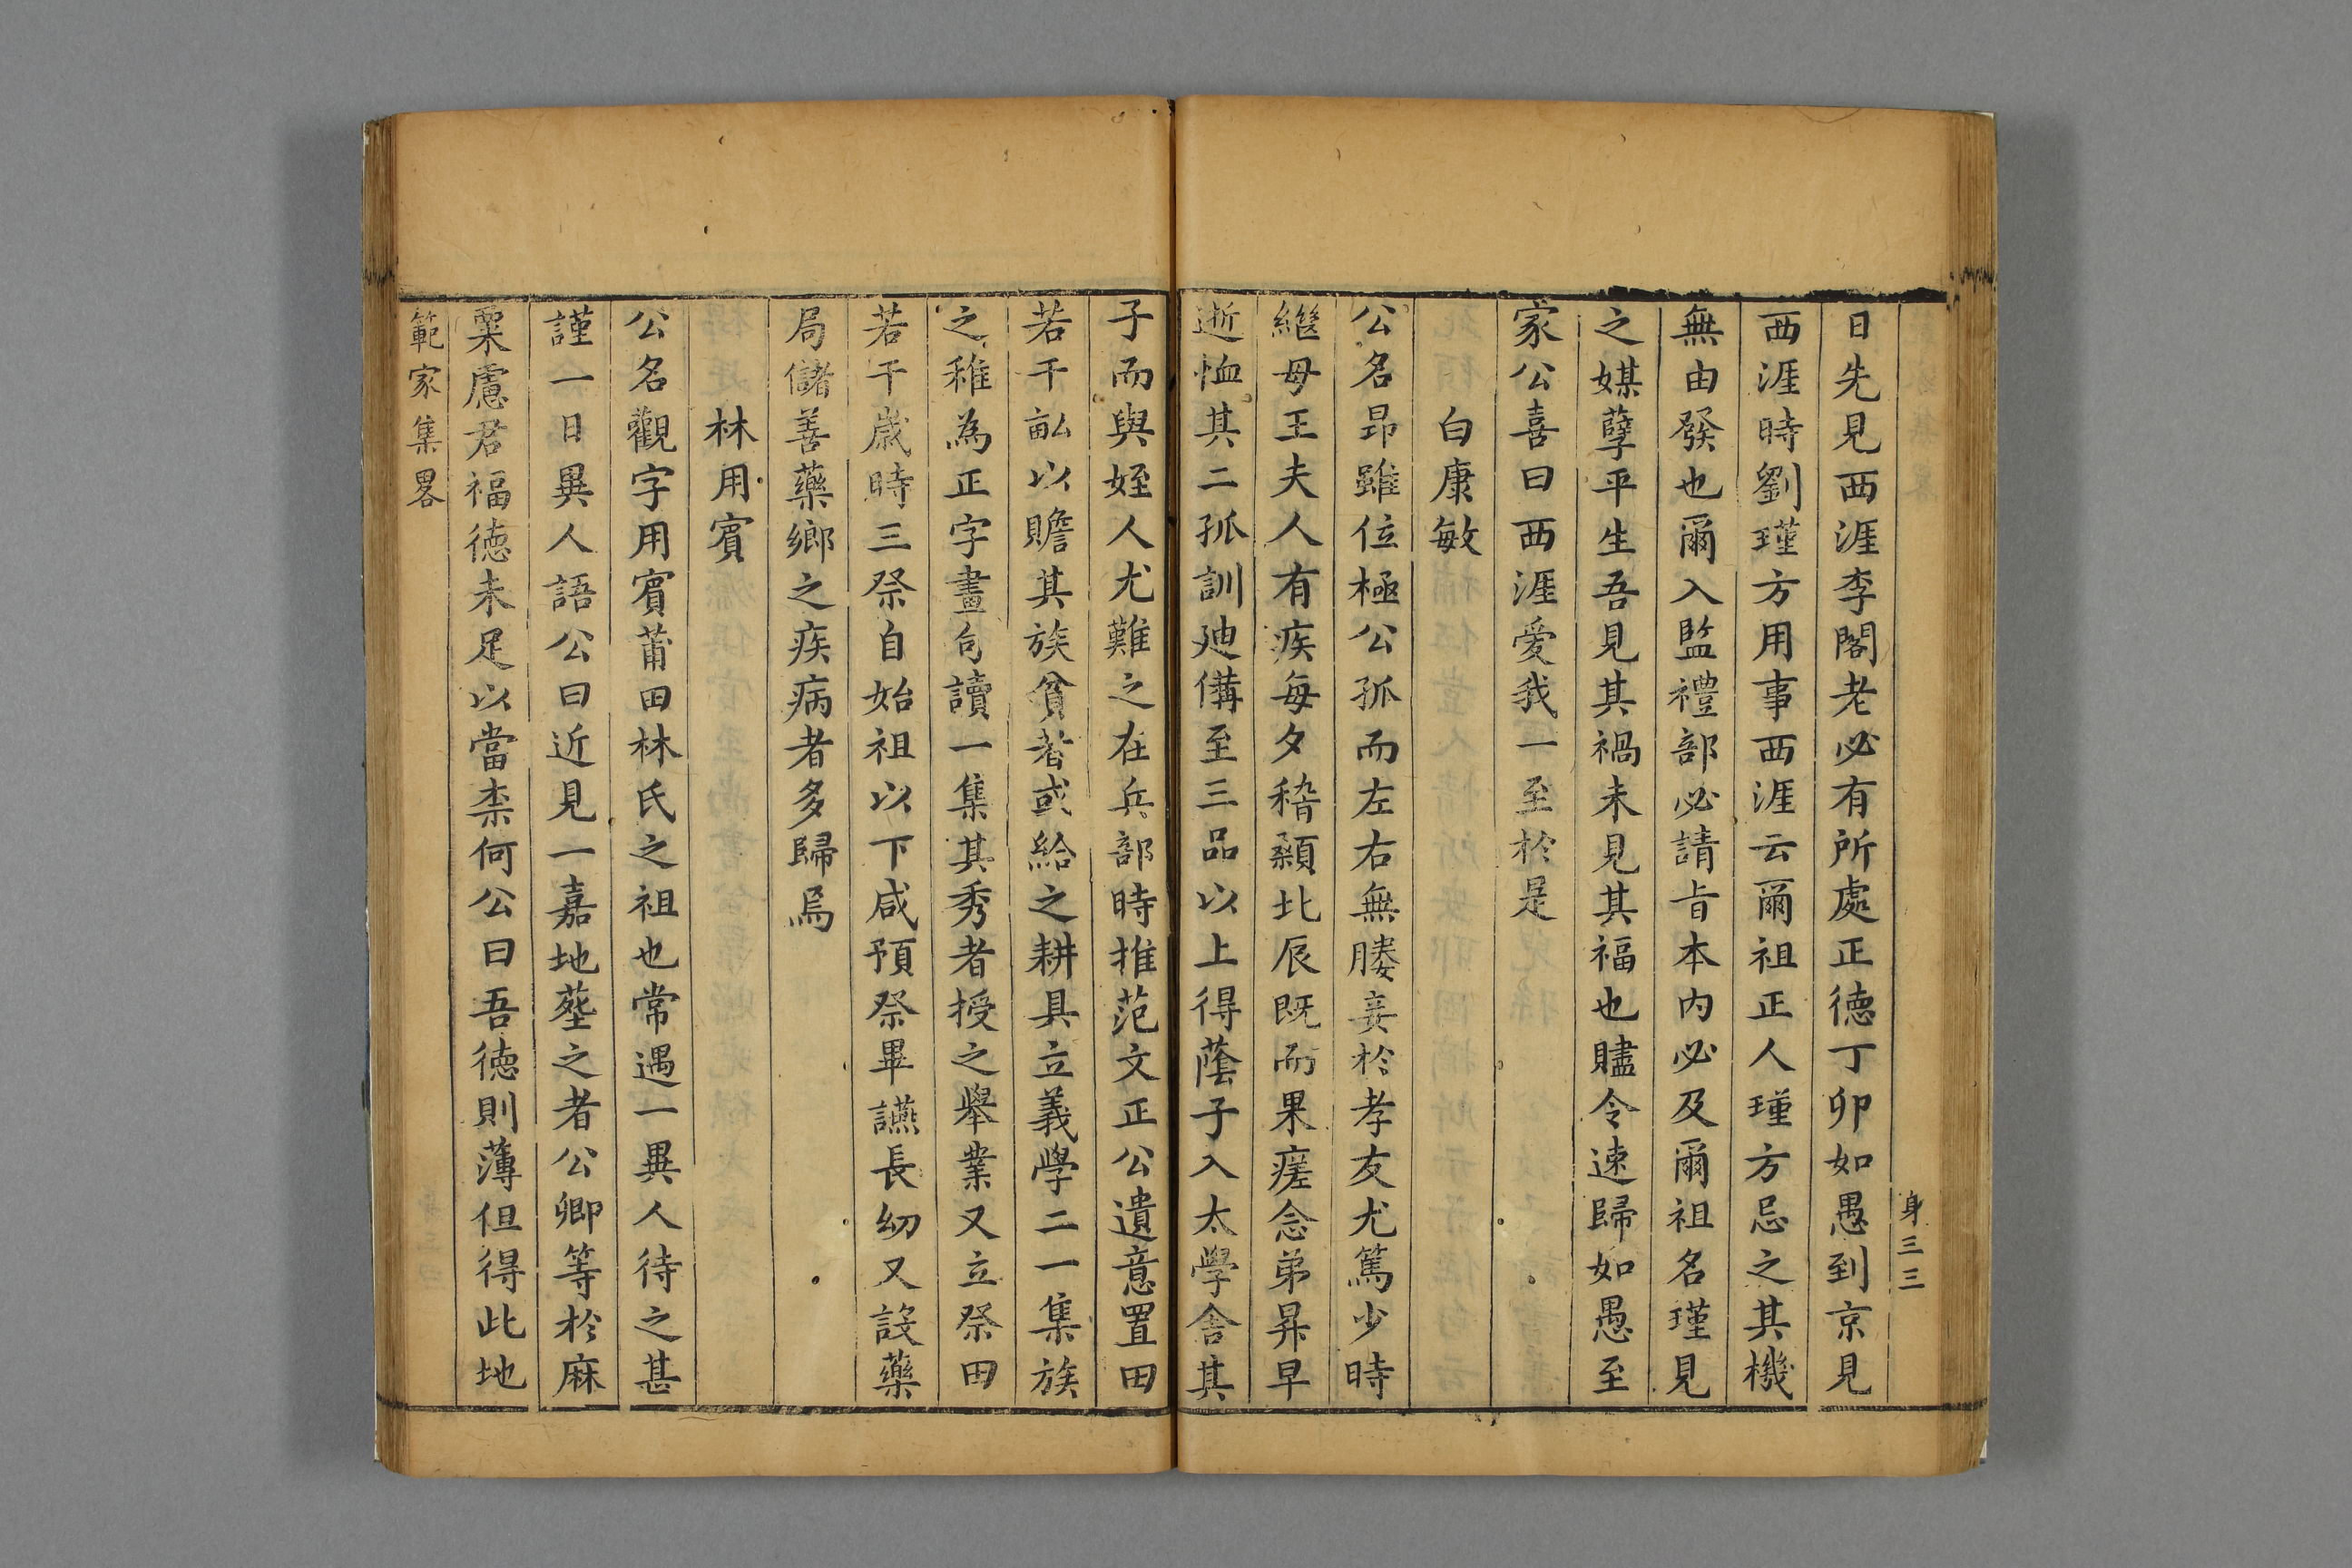 身三三
日先見西涯李閣老必有所處正德丁卯如愚到京見
西涯時劉瑾方用事西涯云爾祖正人瑾方忌之其機
無由發也爾入監禮部必請旨本內必及爾祖名瑾見
之媒孽平生吾見其禍未見其福也贐令速歸如愚至
家公喜曰西涯愛我一至於是
白康敏
公名昂雖位極公孤而左右無媵妾於孝友尤篤少時
繼母王夫人有疾每夕稽顙北辰既而果瘥念弟昇早
逝恤其二孤訓廸備至三品以上得蔭子入太學舍其
子而與姪人尤難之在兵部時推范文正公遺意置田
若干畝以贍其族貧者或給之耕具立義學二一集族
之稚為正字畫句讀一集其秀者授之舉業又立祭田
若干歲時三祭自始祖以下咸預祭畢讌長幼又設藥
局儲善藥鄉之疾病者多歸焉
林用賓
公名觀字用賓莆田林氏之祖也常遇一異人待之甚
謹一日異人語公曰近見一嘉地塟之者公卿等於麻
粟慮君福德未足以當柰何公曰吾德則薄但得此地
範家集畧